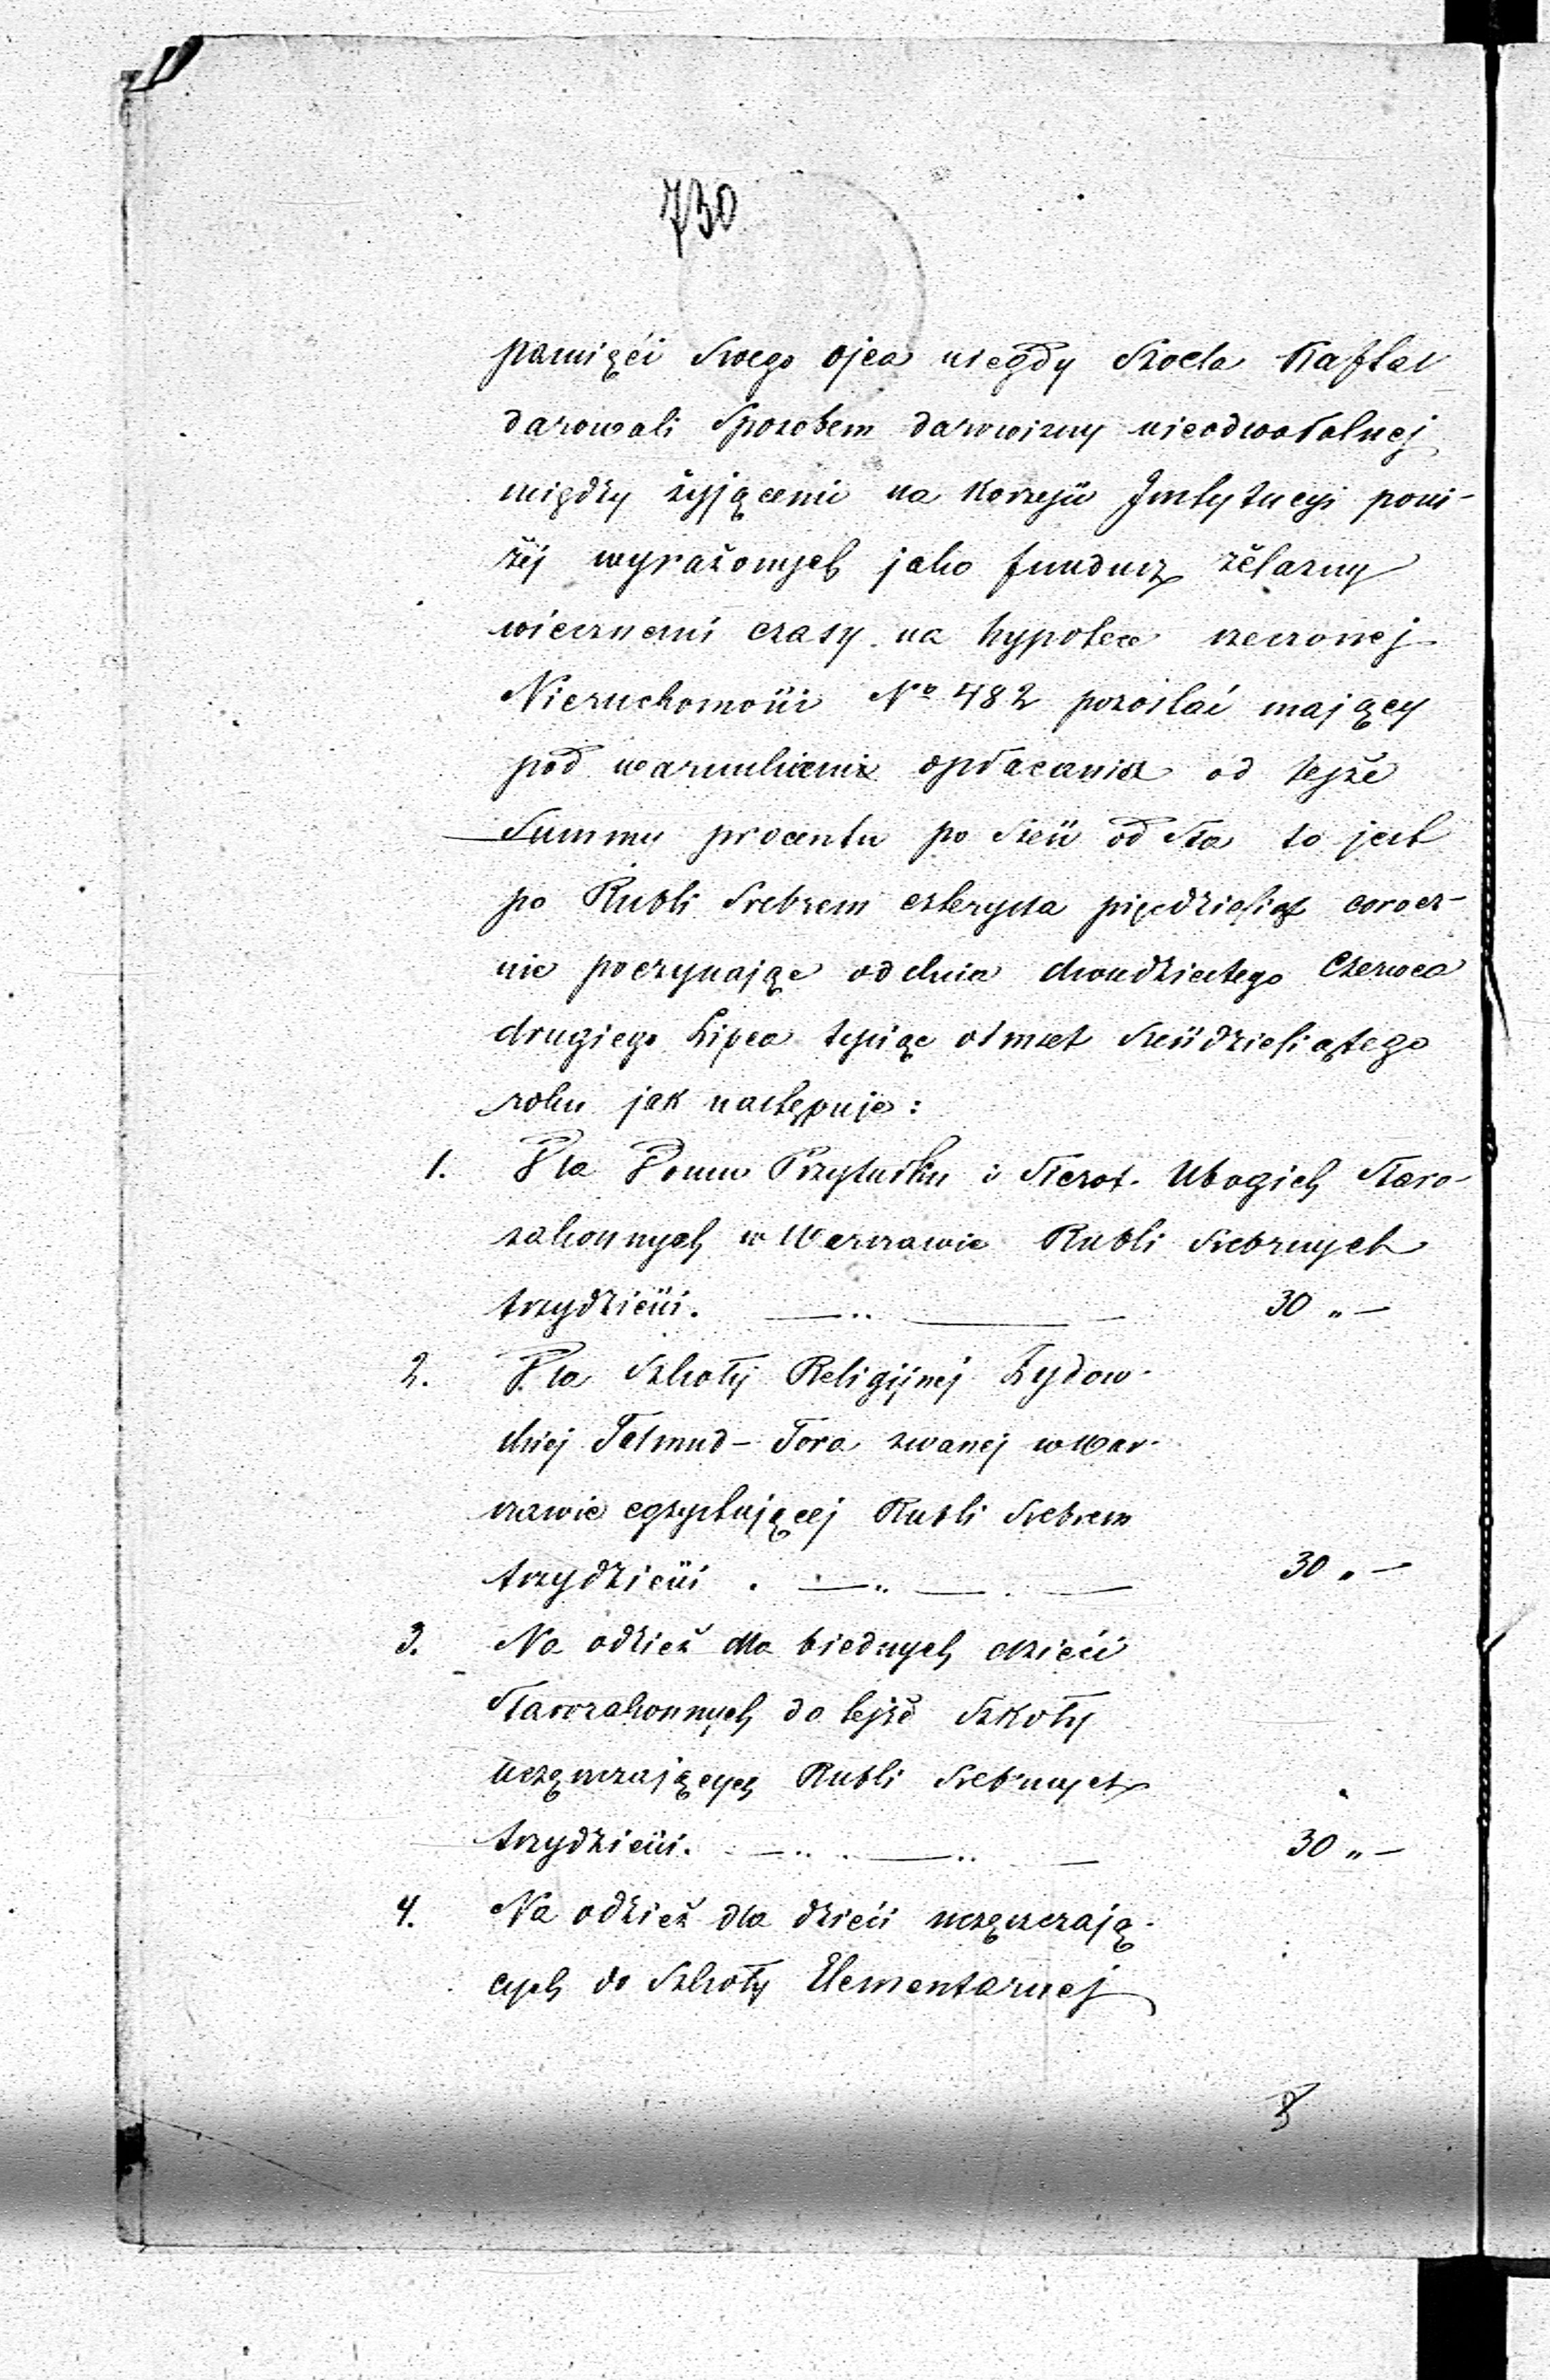 730
pamięci Swego ojca niegdy Szoela Kaftal
darowali Sposobem darowizny nieodwołalnej
między żyjącemi na korzyść Instytucyi poni-
żéj wyrażonych jako fundusz żelazny
wiecznemi czasy na hypotece rzeczonej
Nieruchomości No 482 pozostać mający
pod warunkiem opłacania od tejże
Summy procentu po Sześć od Sta to jest
po Rubli Srebrem czterysta pięćdziesiąt corocz-
nie poczynając od dnia dwudziestego Czerwca
drugiego Lipca tysiąc ośmset Sześćdziesiątego
roku jak następuje:
1. Dla Domu Przytułku i Sierot Ubogich Staro-
zakonnych w Warszawie Rubli Srebrnych
trzydzieści. — .. — 30 „ —
2. Dla Szkoły Religijnéj Żydow-
skiej Talmud-Tora zwanej w War-
szawie egzystującej Rubli Srebrem
trzydzieści . — „ — . — 30 „ —
3. Na odzież dla biednych dzieci
Starozakonnych do tejże Szkoły
uczęszczających Rubli Srebrnych
trzydzieści. — .. — .. — 30 „ —
4. Na odzież dla dzieci uczęszczają-
cych do Szkoły Elementarnej